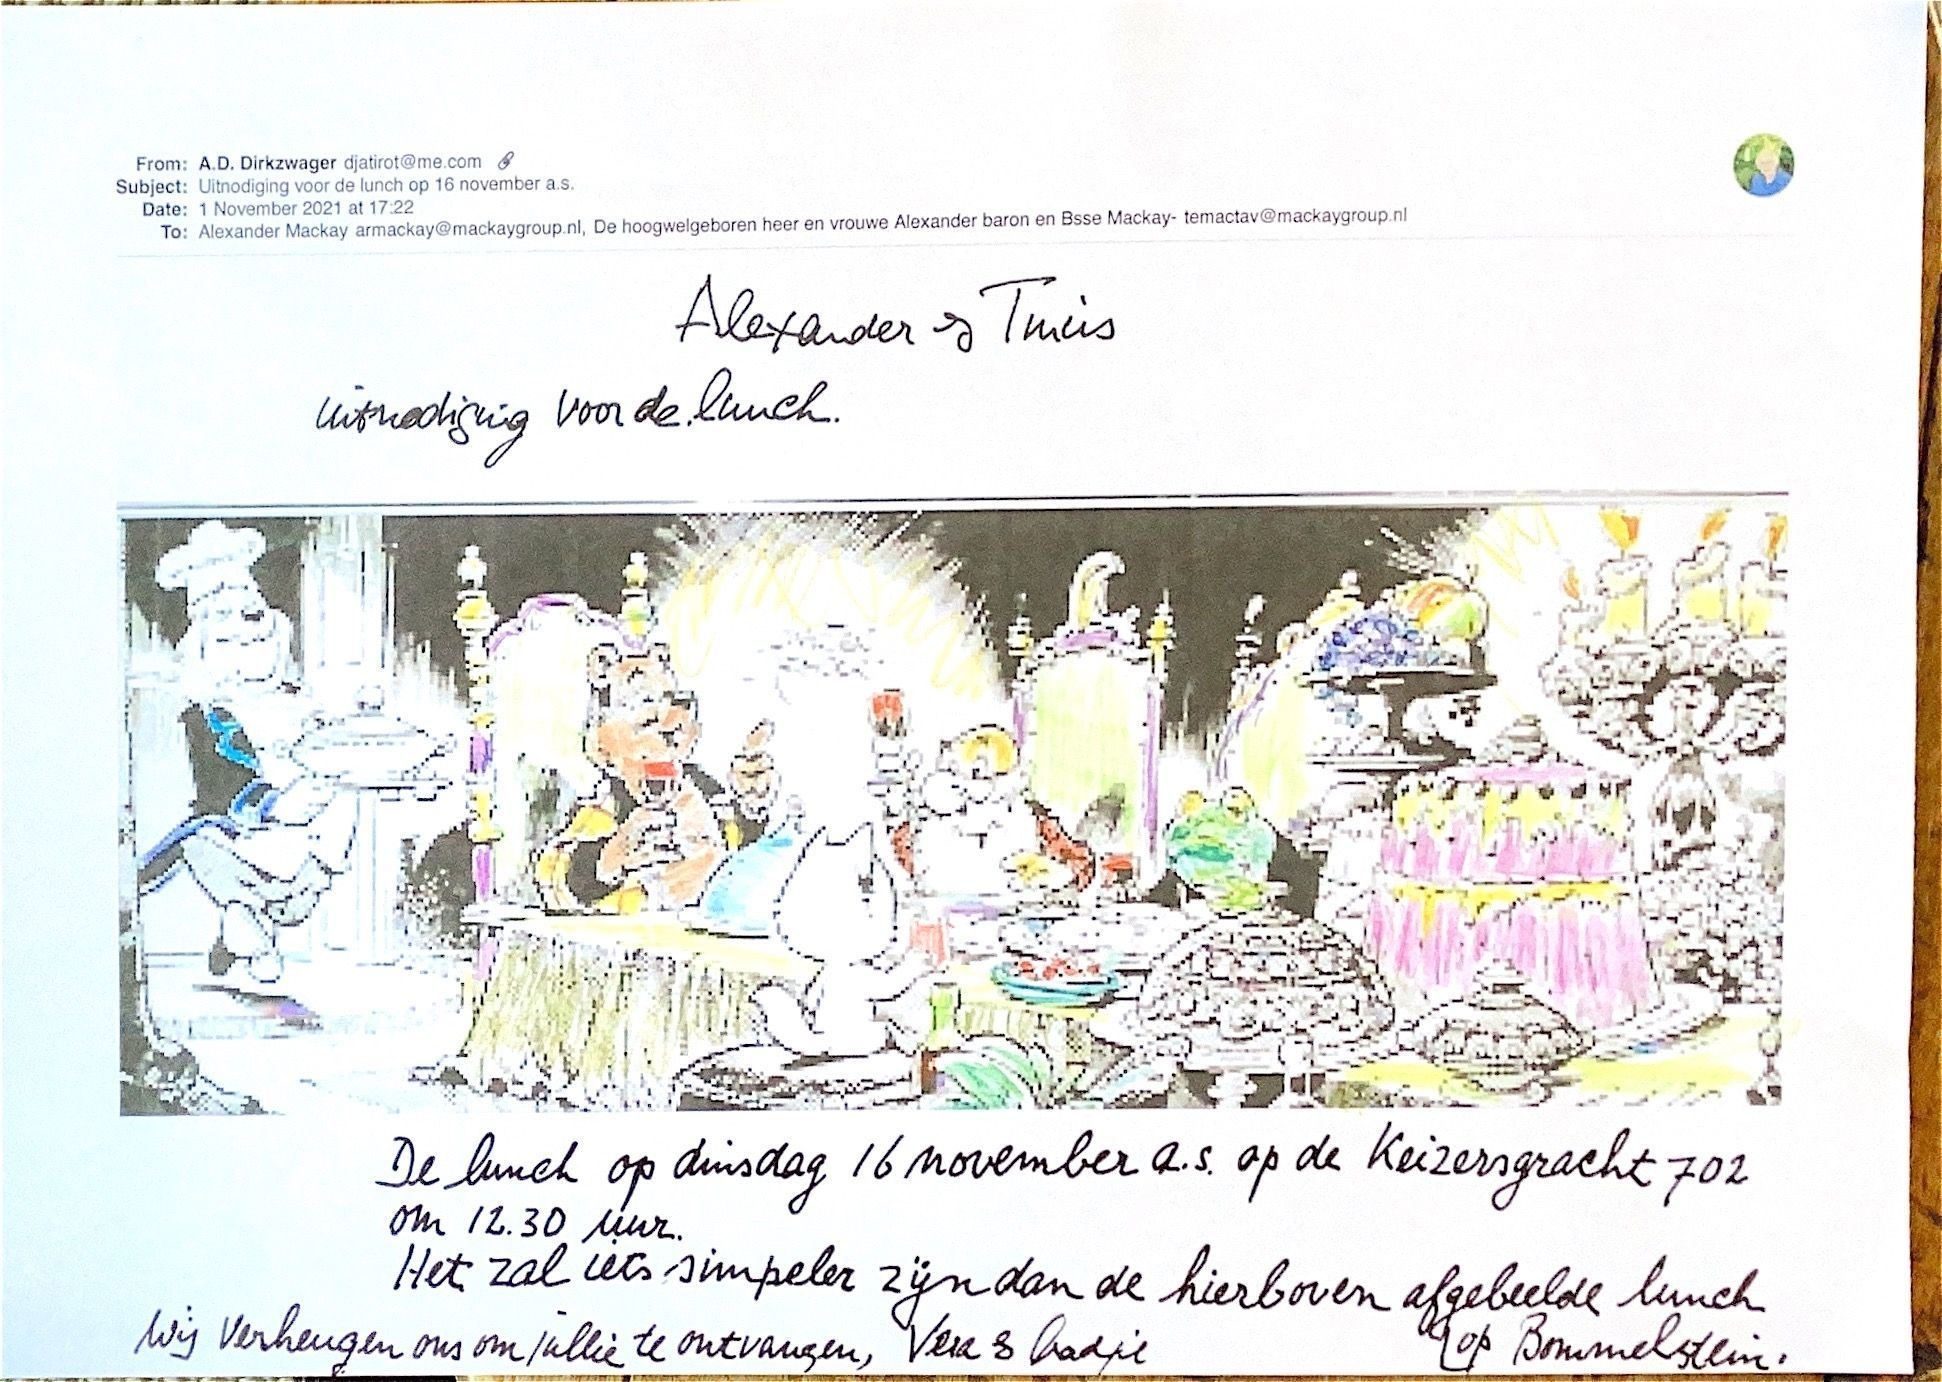 From: A.D. Dirkzwager djatirot@me.com
Subject: Uitnodiging voor de lunch op 16 november a.s.
Date: 1 November 2021 at 17:22
To: Alexander Mackay armackay@mackaygroup.nl, De hoogwelgeboren heer en vrouwe Alexander baron en Bsse Mackay- temactav@mackaygroup.nl
Alexander &
uitnodiging voor de lunch.
De lunch op dinsdag 16 november a.s. op de Keizersgracht 702
om 12.30 uur.
Het zal iets simpeler zijn dan de hierboven afgebeelde lunch
op Bommelstein.
Wij verheugen ons om jullie te ontvangen, Vera &